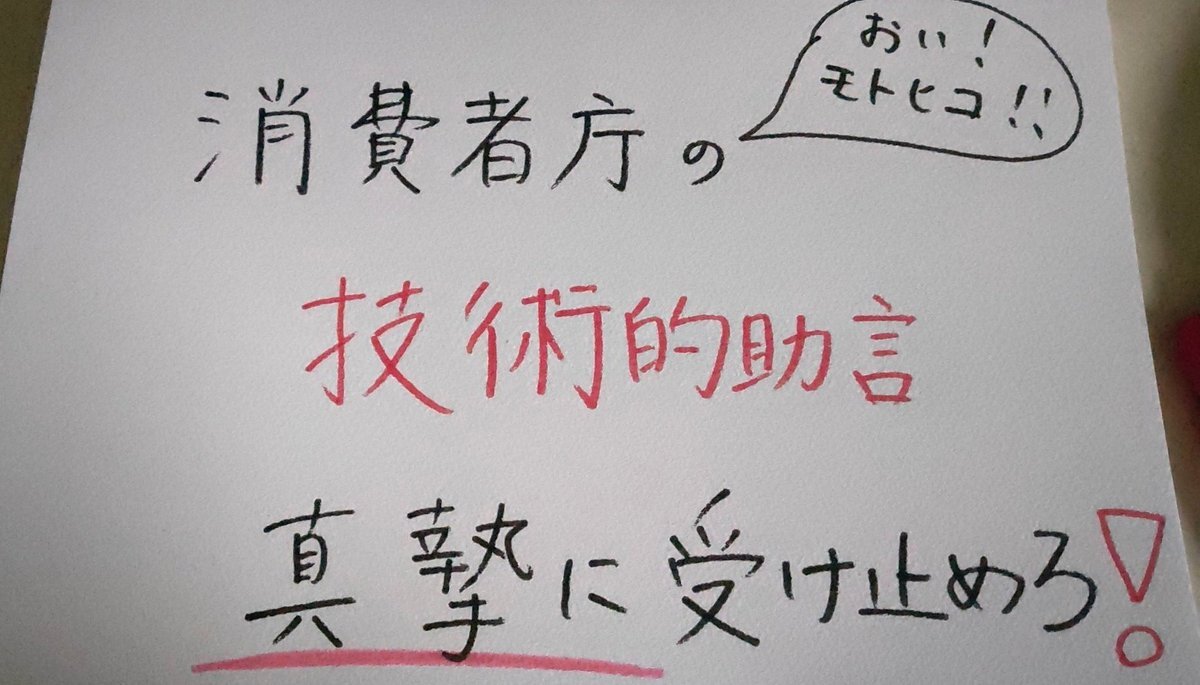 おい!
モトヒコ!!
消費者庁の
技術的助言
真摯に受け止めろ!